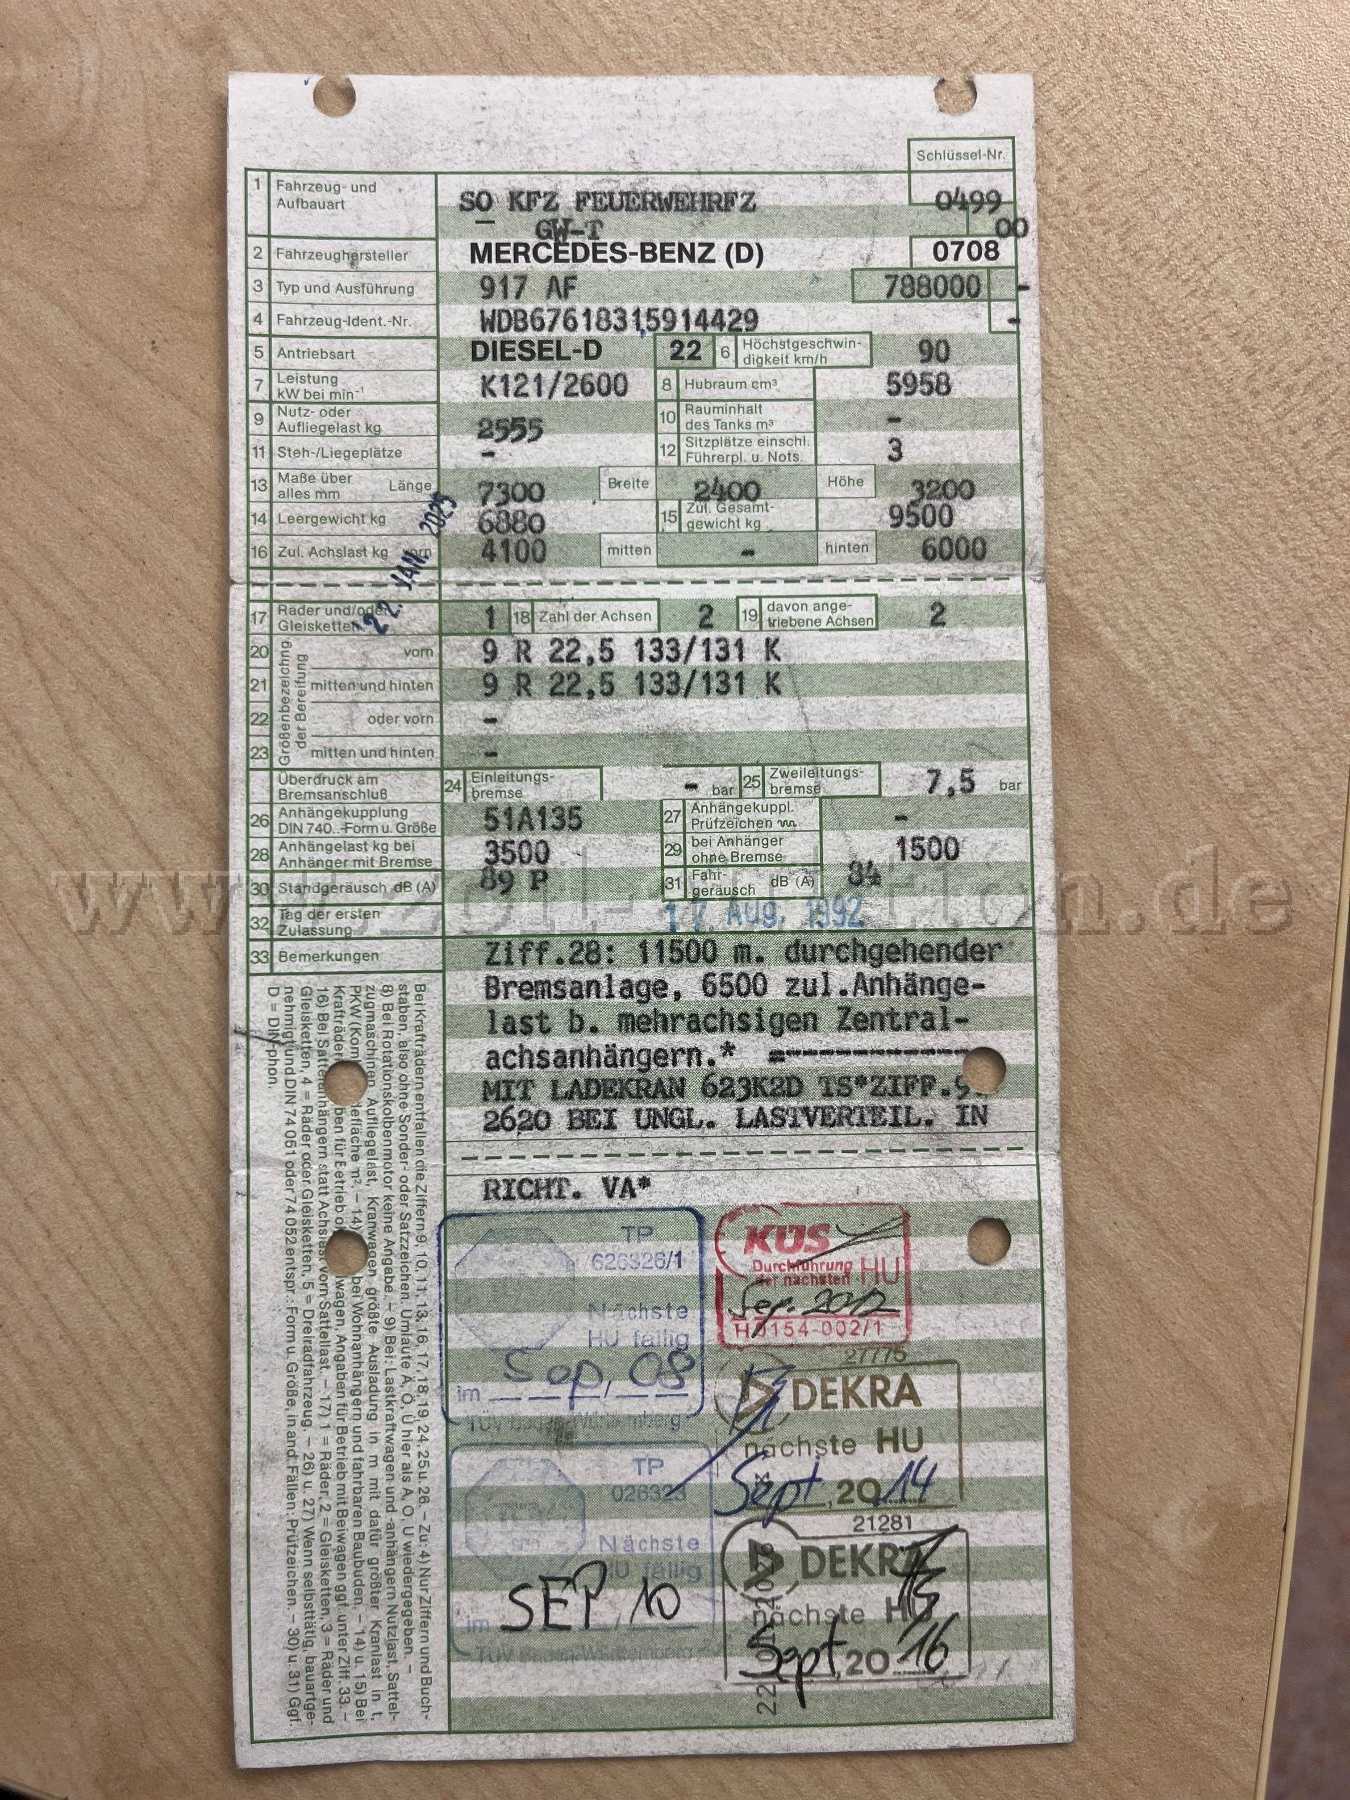 Schlüssel-Nr.
1 Fahrzeug- und Aufbauart SO KFZ FEUERWEHRFZ 0499
GW-T 00
2 Fahrzeughersteller MERCEDES-BENZ (D) 0708
3 Typ und Ausführung 917 AF 788000 -
4 Fahrzeug-Ident.-Nr. WDB67618315914429 -
5 Antriebsart DIESEL-D 22 6 Höchstgeschwindigkeit km/h 90
7 Leistung kW bei min⁻¹ K121/2600 8 Hubraum cm³ 5958
9 Nutz- oder Aufliegelast kg 2555 10 Rauminhalt des Tanks m³ -
11 Steh-/Liegeplätze - 12 Sitzplätze einschl. Führerpl. u. Nots. 3
13 Maße über alles mm Länge 7300 Breite 2400 Höhe 3200
14 Leergewicht kg 6880 15 Zul. Gesamtgewicht kg 9500
16 Zul. Achslast kg vorn 4100 mitten - hinten 6000
22. JAN. 2025
17 Räder und/oder Gleisketten 1 18 Zahl der Achsen 2 19 davon angetriebene Achsen 2
Größenbezeichnung der Bereifung
20 vorn 9 R 22,5 133/131 K
21 mitten und hinten 9 R 22,5 133/131 K
22 oder vorn -
23 mitten und hinten -
Überdruck am Bremsanschluß 24 Einleitungsbremse - bar 25 Zweileitungsbremse 7,5 bar
26 Anhängekupplung DIN 740..-Form u. Größe 51A135 27 Anhängekuppl. Prüfzeichen -
28 Anhängelast kg bei Anhänger mit Bremse 3500 29 bei Anhänger ohne Bremse 1500
30 Standgeräusch dB (A) 89 P 31 Fahrgeräusch dB (A) 84
32 Tag der ersten Zulassung 17. Aug. 1992
33 Bemerkungen Ziff.28: 11500 m. durchgehender
Bremsanlage, 6500 zul.Anhänge-
last b. mehrachsigen Zentral-
achsanhängern.* =-----------
MIT LADEKRAN 623K2D TS*ZIFF.9
2620 BEI UNGL. LASTVERTEIL. IN
RICHT. VA*
Bei Krafträdern entfallen die Ziffern 9, 10, 11, 13, 16, 17, 18, 19, 24, 25 u. 26. – Zu: 4) Nur Ziffern und Buch-
staben, also ohne Sonder- oder Satzzeichen. Umlaute Ä, Ö, Ü hier als A, O, U wiedergegeben. –
8) Bei Rotationskolbenmotor keine Angabe. – 9) Bei: Lastkraftwagen und -anhängern Nutzlast, Sattel-
zugmaschinen Aufliegelast, Kranwagen größte Ausladung in m mit dafür größter Kranlast in t,
PKW (Kom efläche m². – 14) bei Wohnanhängern und fahrbaren Baubuden. – 14) u. 15) Bei
Krafträdern ben für Betrieb o wagen, Angaben für Betrieb mit Beiwagen ggf. unter Ziff. 33. –
16) Bei Sattelanhängern statt Achslast vorn Sattellast. – 17) 1 = Räder, 2 = Gleisketten, 3 = Räder und
Gleisketten, 4 = Räder oder Gleisketten, 5 = Dreiradfahrzeug. – 26) u. 27) Wenn selbsttätig, bauartge-
nehmigt und DIN 74 051 oder 74 052 entspr.: Form u. Größe, in and. Fällen: Prüfzeichen. – 30) u. 31) Ggf.
D = DIN-phon.
TP
626326/1
Nächste
HU fällig
im Sep. / 08
KÜS
Durchführung
der nächsten HU
Sep. 2012
H0154-002/1
27775
DEKRA
nächste HU
Sept. 2014
TP
026323
Nächste
HU fällig
im SEP / 10
21281
DEKRA
nächste HU
Sept. 2016
www.zoll-auktion.de